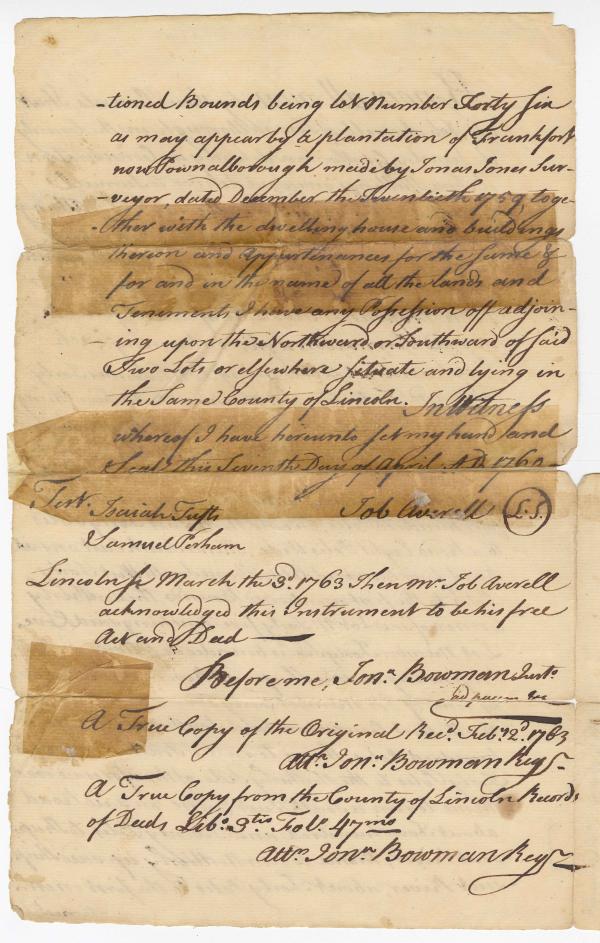 -tioned Bounds being lot Number Forty Six
as may appear by a plantation of Frankfort
now Pownalborough made by Jonas Jones Sur-
-veyor, dated December the Twentieth 1759 toge-
-ther with the dwelling house and buildings
thereon and Appurtenances for the Same &
for and in the name of all the lands and
Teniments I have any Possession off adjoin-
-ing upon the Northward or Southward of said
Two Lots or elsewhere situate and lying in
the Same County of Lincoln. In Witness
whereof I have hereunto set my hand and
Seal this Seventh Day of April AD. 1760
Test. Isaiah Tufts Job Averell L.S.
Samuel Perham
Lincoln ss March the 3d. 1763 Then Mr. Job Averell
acknowledged this Instrument to be his free
Act and Deed
Before me, Jonn. Bowman Justs.
A True Copy of the Original Recd. Feby. 2d. 1763
Attr. Jonn. Bowman Regr
A True Copy from the County of Lincoln Records
of Deeds Libo. 3tio Folo. 47mo
Attr. Jonn. Bowman Regr